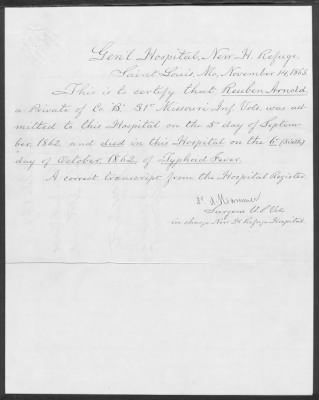 Gen'l Hospital, New H. Refuge,
Saint Louis, Mo, November 14, 1863.
This is to certify that Reuben Arnold,
a Private of Co "B" 31st Missouri Inf. Vols. was ad-
mitted to this Hospital on the 5th day of Septem-
ber, 1862, and died in this Hospital on the 6th (Sixth)
day of October, 1862, of Typhoid Fever.
A correct transcript from the Hospital Register.
Surgeon U.S. Vols
in charge New H. Refuge Hospital.